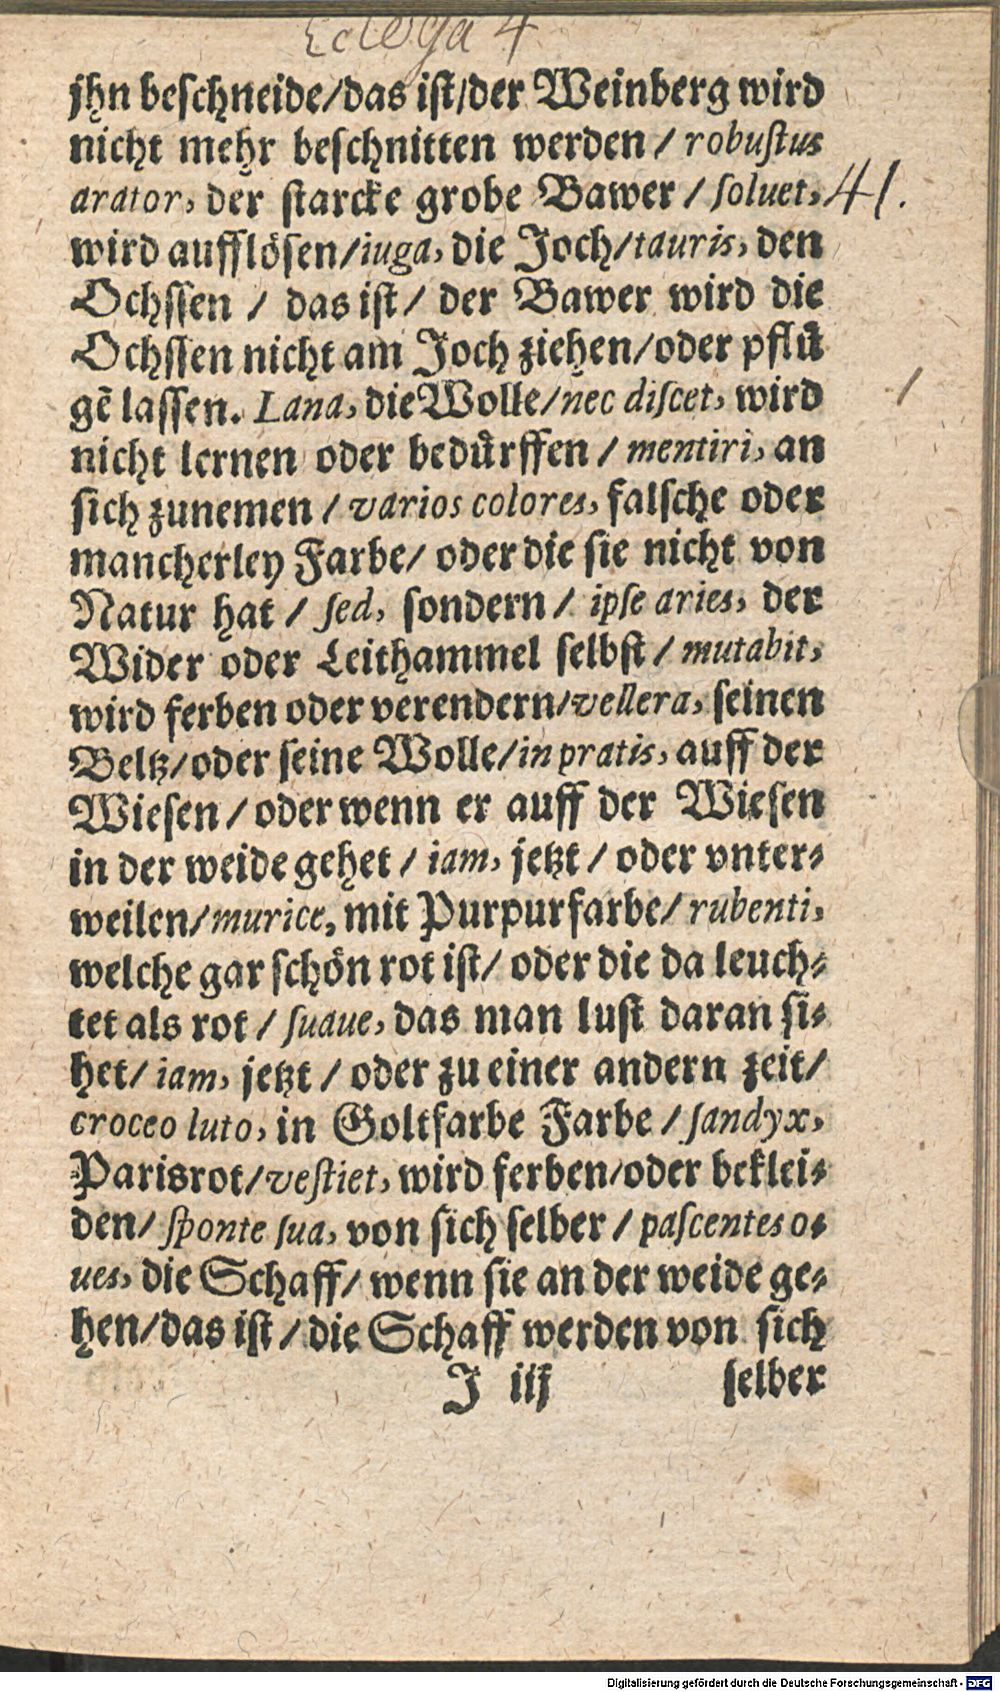 Ecloga 4
jhn beschneide/das ist/der Weinberg wird
nicht mehr beschnitten werden / robustus
arator, der starcke grobe Bawer / soluet, 41.
wird aufflösen/iuga, die Joch/tauris, den
Ochssen / das ist / der Bawer wird die
Ochssen nicht am Joch ziehen/oder pfluͤ
gē lassen. Lana, die Wolle/nec discet, wird /
nicht lernen oder beduͤrffen / mentiri, an
sich zunemen / varios colores, falsche oder
mancherley Farbe/ oder die sie nicht von
Natur hat / sed, sondern / ipse aries, der
Wider oder Leithammel selbst / mutabit,
wird ferben oder verendern/vellera, seinen
Beltz/oder seine Wolle/in pratis, auff der
Wiesen / oder wenn er auff der Wiesen
in der weide gehet / iam, jetzt / oder vnter⸗
weilen/murice, mit Purpurfarbe/ rubenti,
welche gar schön rot ist/ oder die da leuch⸗
tet als rot / suaue, das man lust daran si⸗
het/ iam, jetzt / oder zu einer andern zeit/
croceo luto, in Goltfarbe Farbe / sandyx,
Parisrot/vestiet, wird ferben/oder beklei⸗
den/ sponte sua, von sich selber / pascentes o⸗
ues, die Schaff/ wenn sie an der weide ge⸗
hen/das ist / die Schaff werden von sich
J iij selber
Digitalisierung gefördert durch die Deutsche Forschungsgemeinschaft - DFG